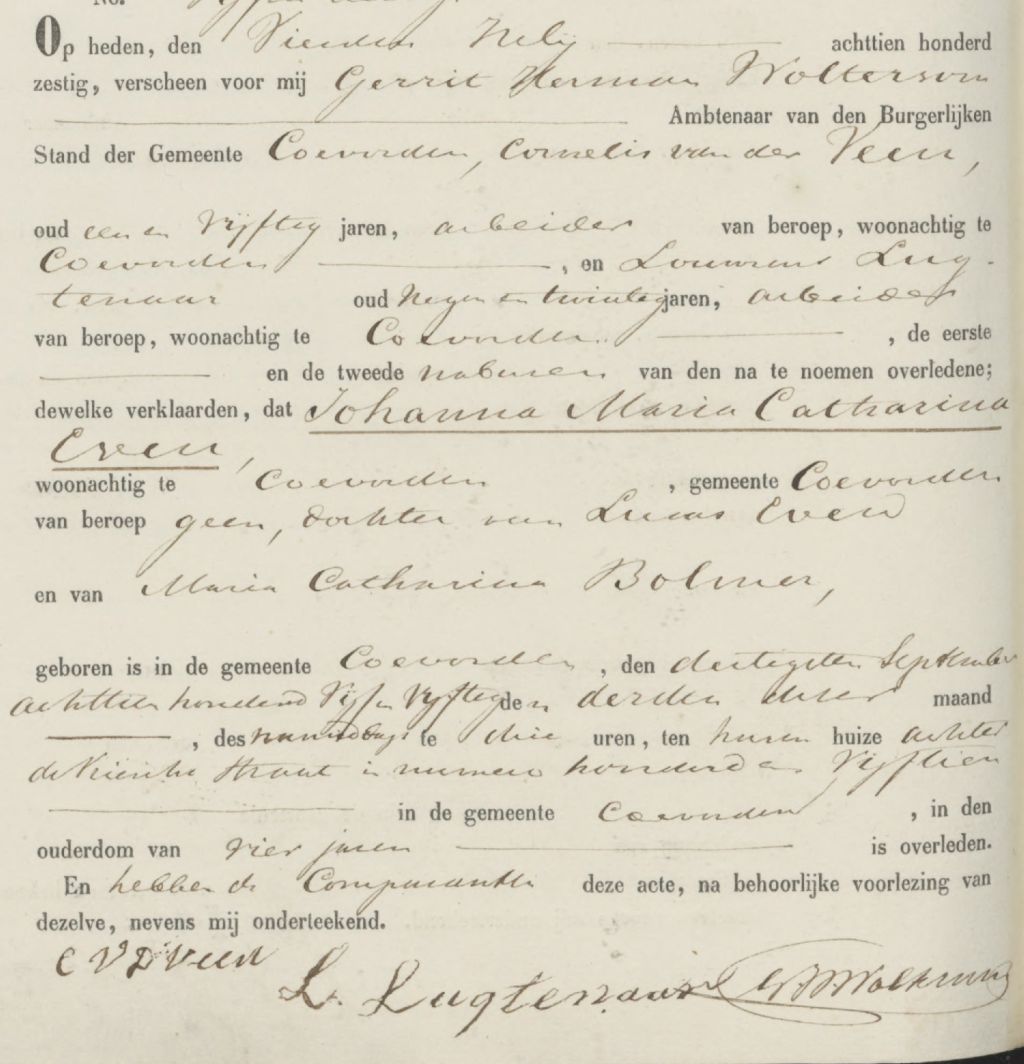 No. Vijf en
Op heden, den Vierden Julij achttien honderd
zestig, verscheen voor mij Gerrit Herman Woltersom
Ambtenaar van den Burgerlijken
Stand der Gemeente Coevorden, Cornelis van der Veen,
oud een en Vijftig jaren, arbeider van beroep, woonachtig te
Coevorden, en Lourens Lug-
tenaar oud Negen en twintig jaren, arbeider
van beroep, woonachtig te Coevorden, de eerste
en de tweede naburen van den na te noemen overledene;
dewelke verklaarden, dat Johanna Maria Catharina
Even,
woonachtig te Coevorden, gemeente Coevorden
van beroep geen, dochter van Lucas Even
en van Maria Catharina Bolmer,
geboren is in de gemeente Coevorden, den dertigsten September
achttien honderd Vijf en Vijftig den derden dezer maand
, des namiddags te drie uren, ten haren huize achter
de Friesche straat in numero honderd en Vijftien
in de gemeente Coevorden, in den
ouderdom van vier jaren is overleden.
En hebben de Comparanten deze acte, na behoorlijke voorlezing van
dezelve, nevens mij onderteekend.
C V D Veen
L. Lugtenaar GHWoltersom